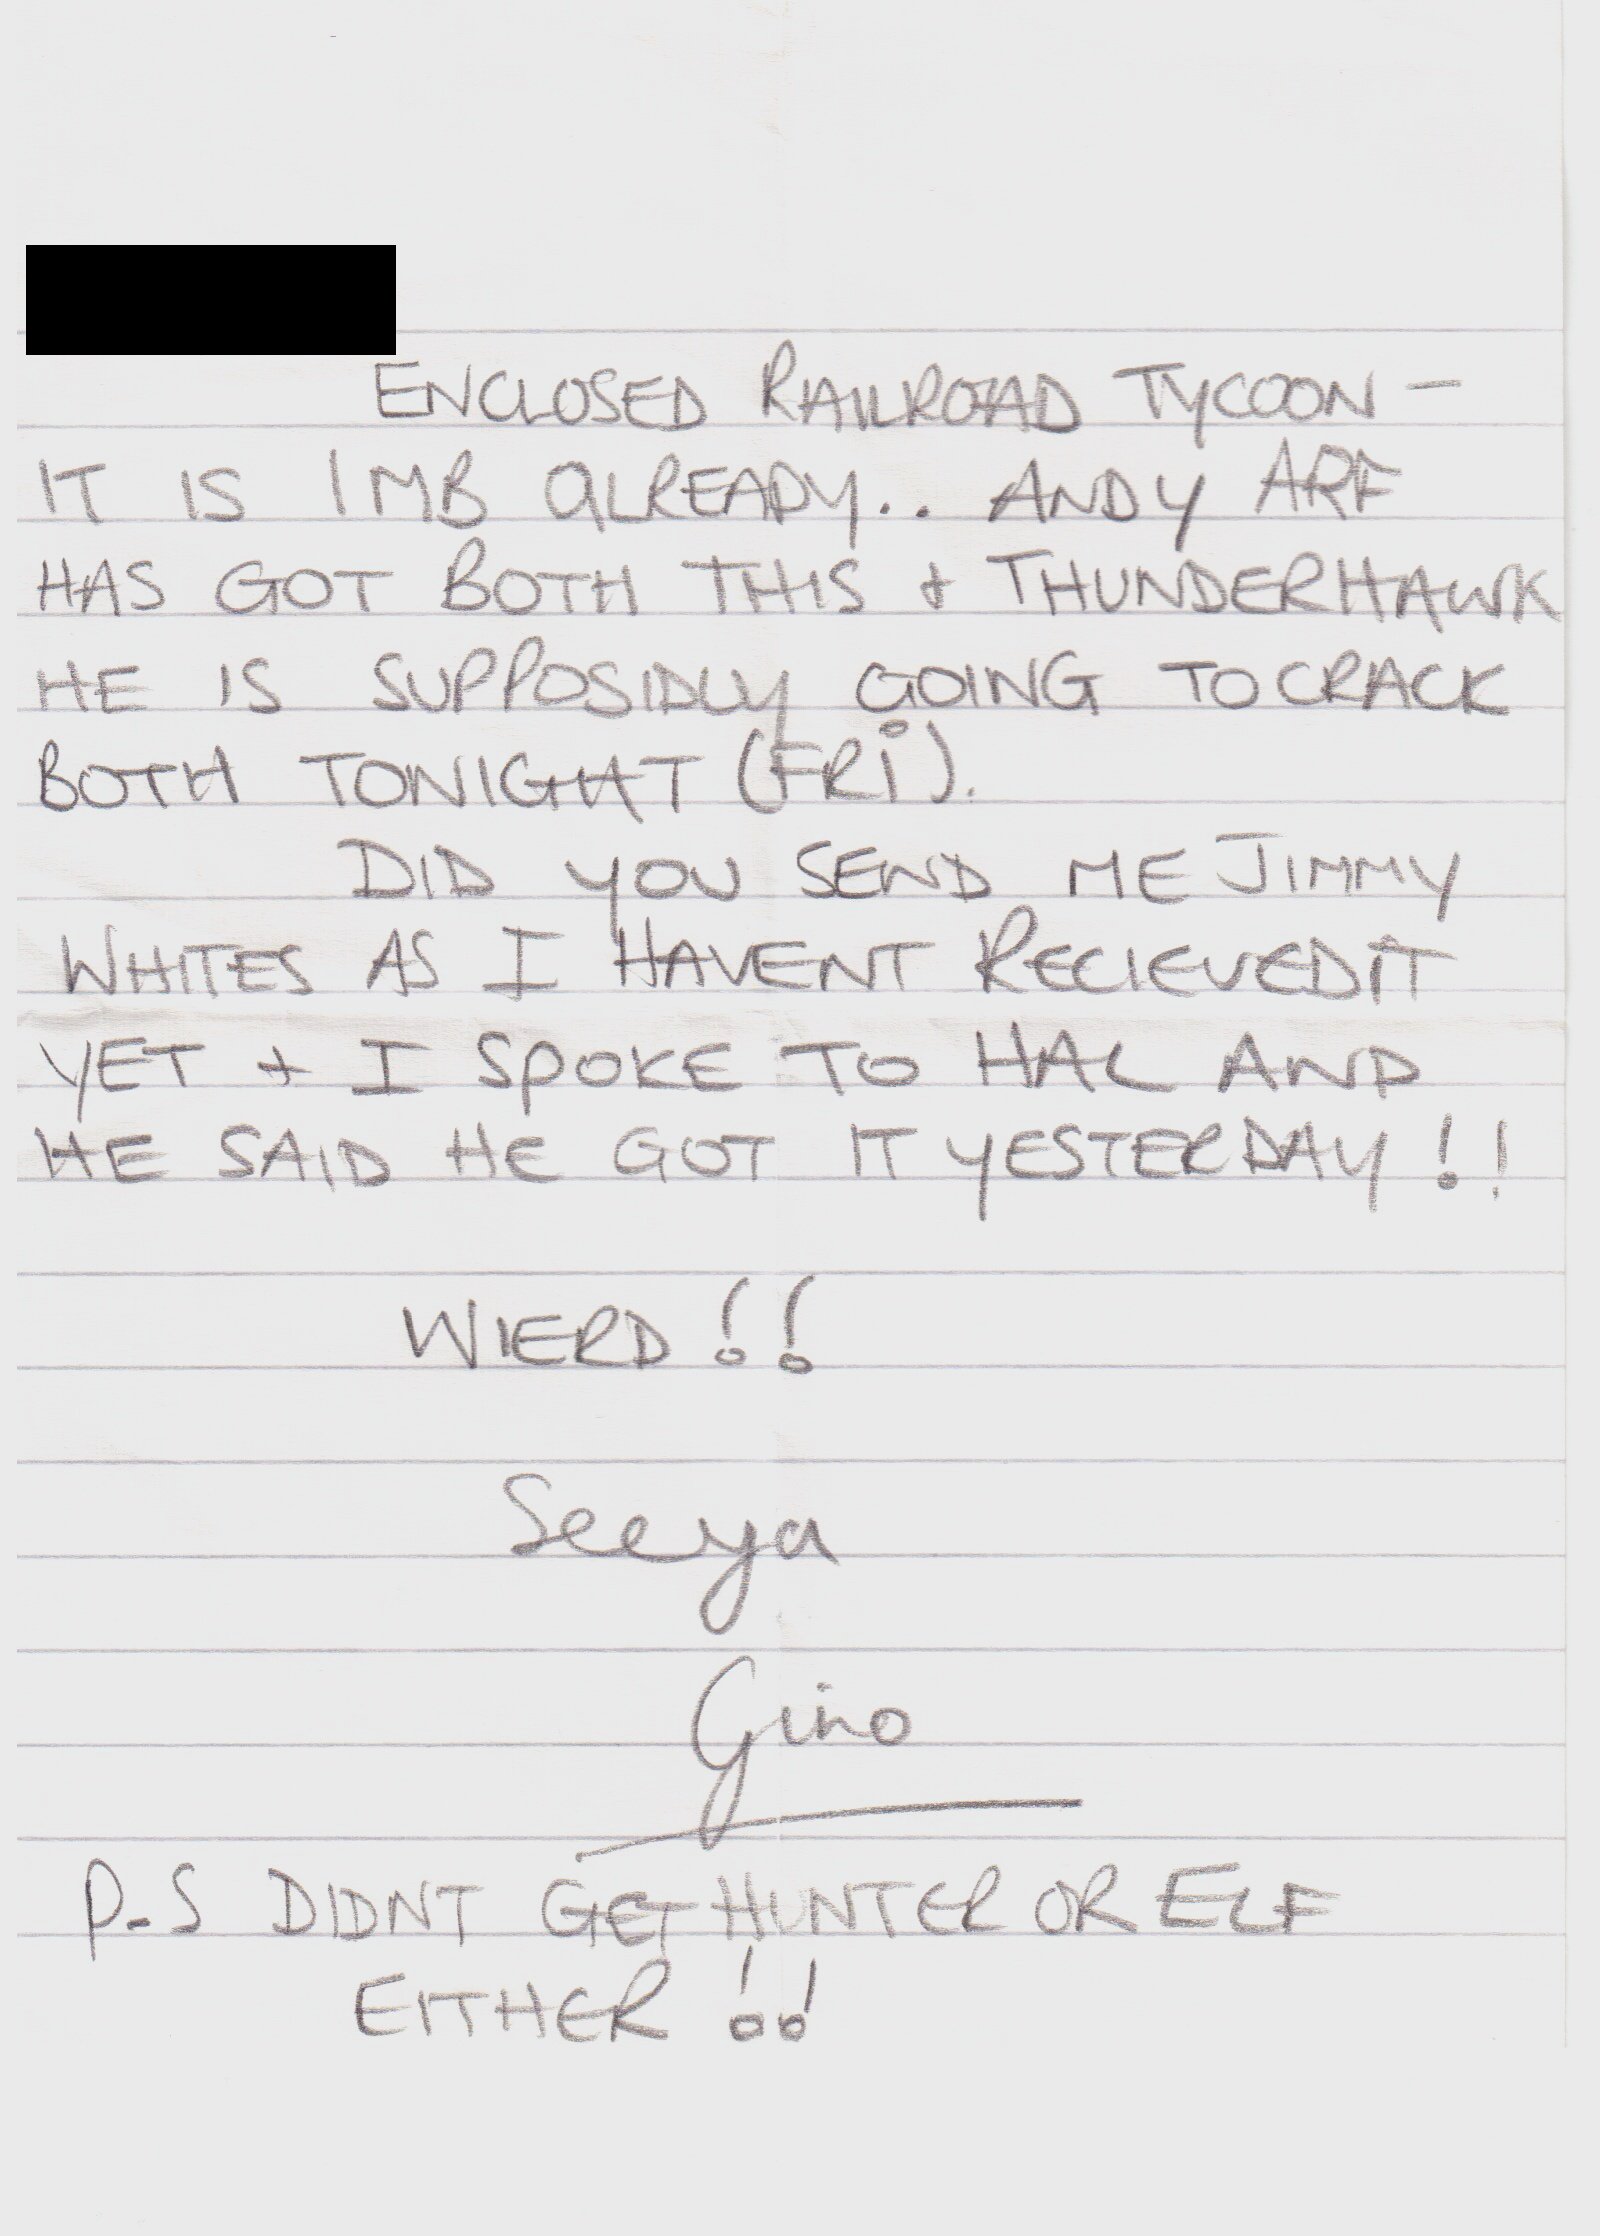 ENCLOSED RAILROAD TYCOON -
IT IS 1MB ALREADY.. ANDY ARF
HAS GOT BOTH THIS + THUNDERHAWK
HE IS SUPPOSIDLY GOING TO CRACK
BOTH TONIGHT (FRI).
DID YOU SEND ME JIMMY
WHITES AS I HAVENT RECIEVED IT
YET + I SPOKE TO HAL AND
HE SAID HE GOT IT YESTERDAY!!
WIERD!!
Seeya
Gino
P-S DIDNT GET HUNTER OR ELF
EITHER!!